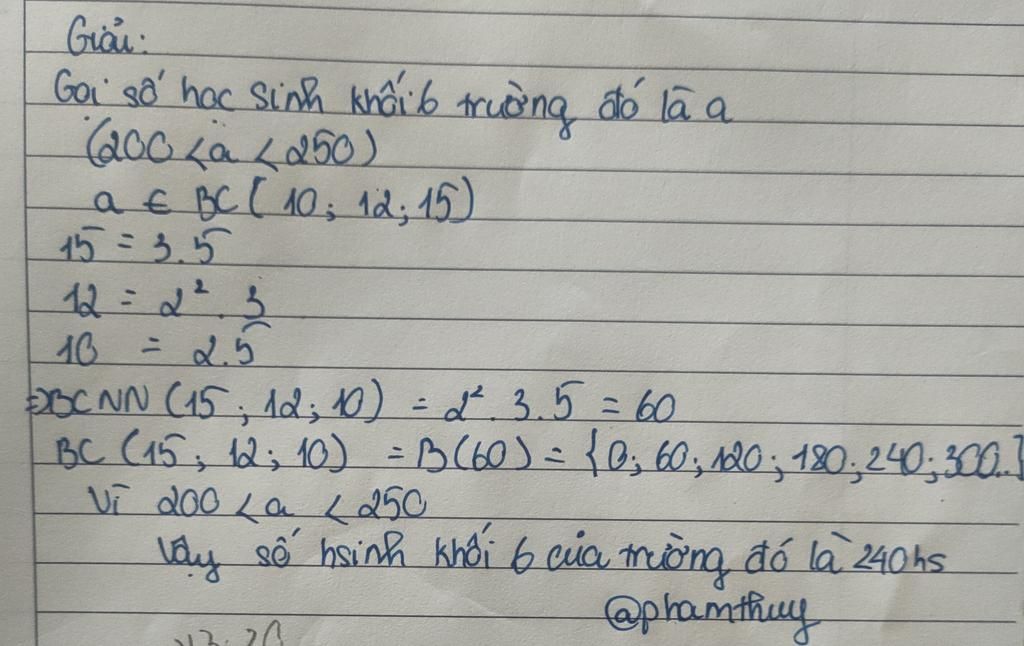 Giải:
Gọi số học sinh khối 6 trường đó là a
(200 < a < 250)
a ∈ BC( 10; 12; 15)
15 = 3.5
12 = 2² . 3
10 = 2.5
⇒BCNN (15; 12; 10) = 2². 3.5 = 60
BC (15; 12; 10) = B(60) = {0; 60; 120; 180; 240; 300..}
Vì 200 < a < 250
Vậy số hsinh khối 6 của trường đó là 240hs
@phamthuy